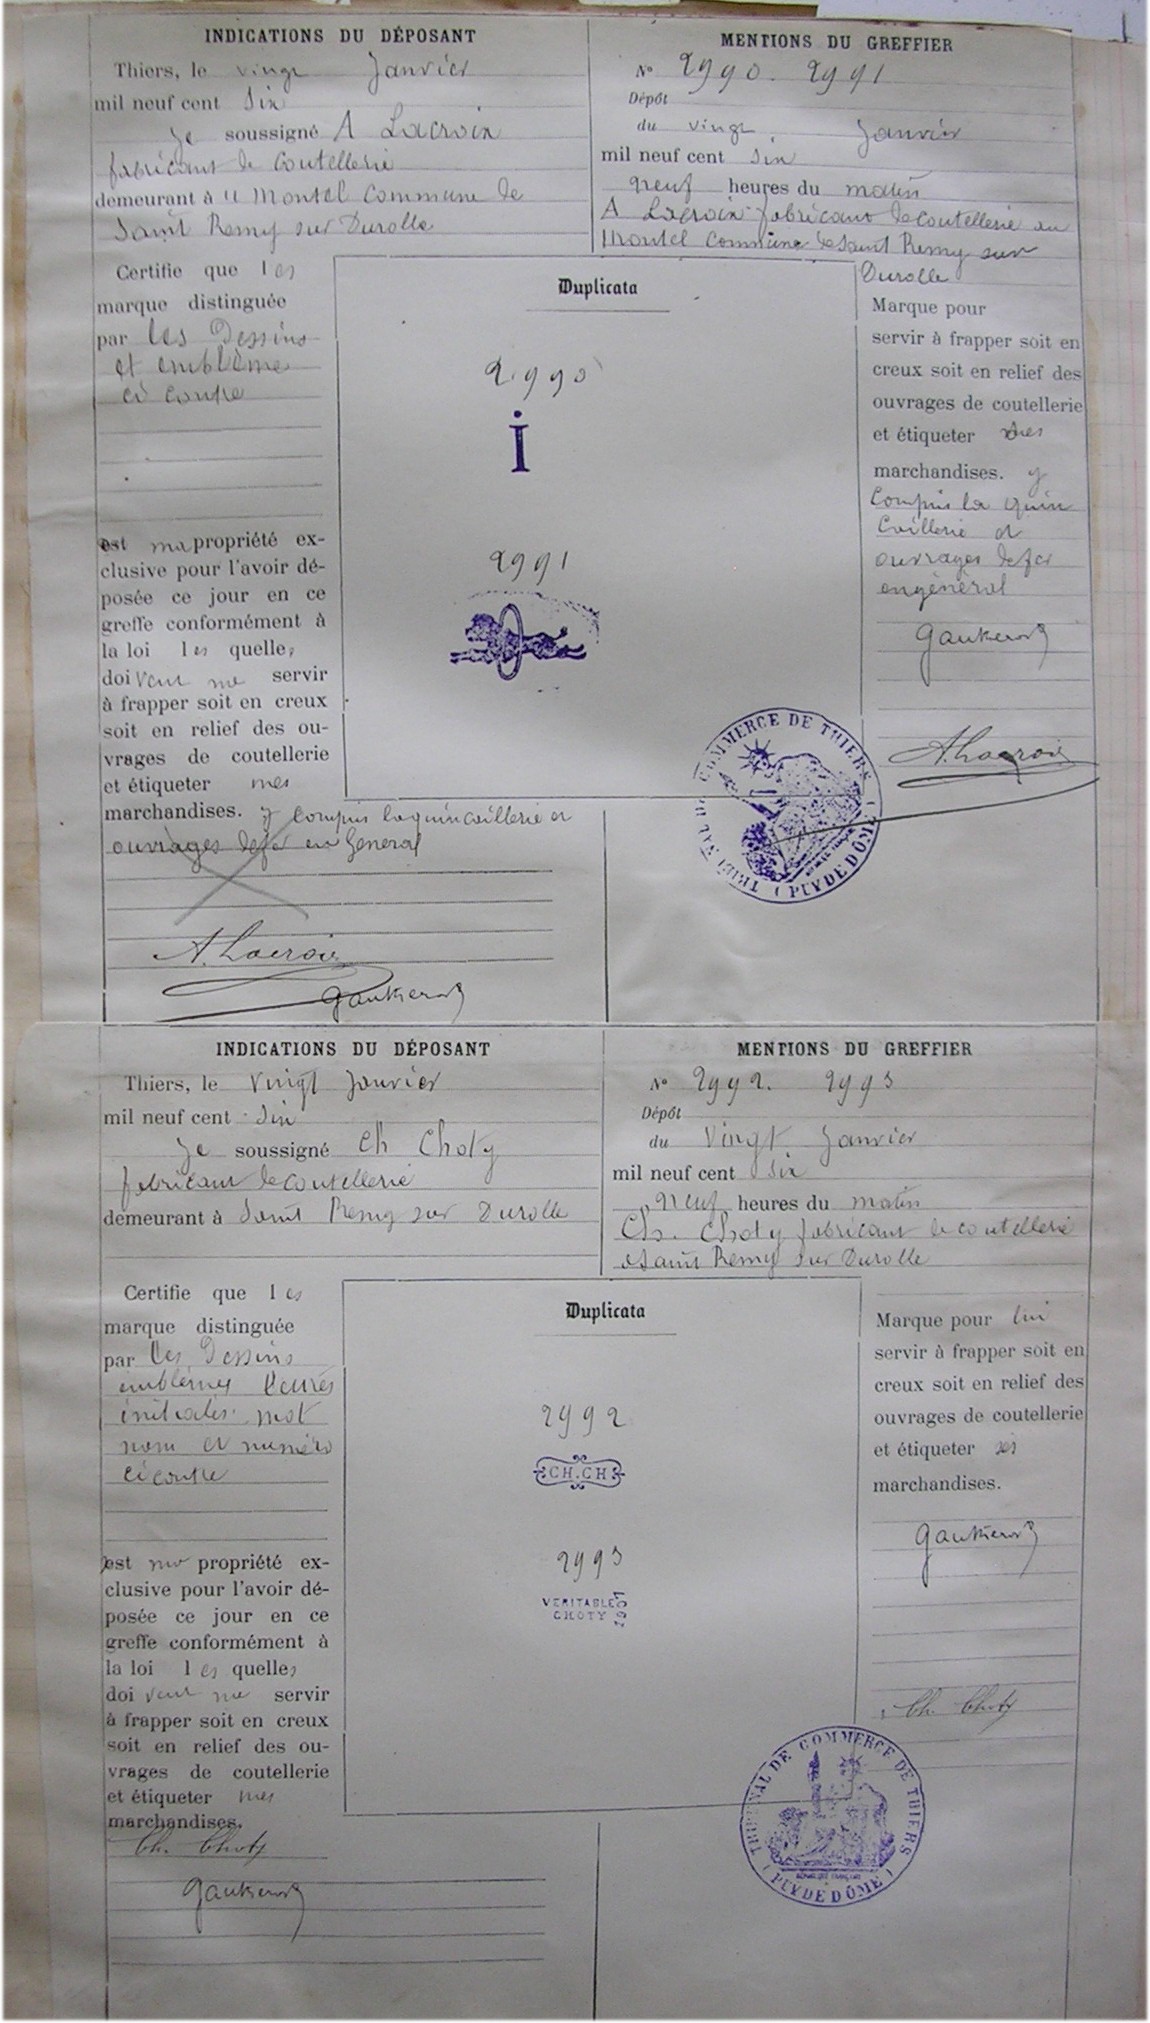 INDICATIONS DU DÉPOSANT
Thiers, le vingt Janvier
mil neuf cent Six
Je soussigné A Lacroix
fabricant de Coutellerie
demeurant à u Montel Commune de
Saint Remy sur Durolle
MENTIONS DU GREFFIER
N° 2990. 2991
Dépôt
du vingt Janvier
mil neuf cent six
neuf heures du matin
A Lacroix fabricant de coutellerie au
Montel Commune de Saint Remy sur
Durolle
Certifie que les
marque distinguée
par les Dessins
et emblème
ci contre
est ma propriété ex-
clusive pour l'avoir dé-
posée ce jour en ce
greffe conformément à
la loi les quelles
doivent me servir
à frapper soit en creux
soit en relief des ou-
vrages de coutellerie
et étiqueter mes
marchandises. y compris la quincaillerie et
ouvrages de fer en General
A. Lacroix
Duplicata
2990
i
2991
Marque pour
servir à frapper soit en
creux soit en relief des
ouvrages de coutellerie
et étiqueter
marchandises. y
Compris la quin
caillerie et
ouvrages de fer
en général
A. Lacroix
TRIBUNAL DE COMMERCE DE THIERS
(PUY DE DÔME)
INDICATIONS DU DÉPOSANT
Thiers, le vingt Janvier
mil neuf cent Six
Je soussigné Ch Choty
fabricant de coutellerie
demeurant à Saint Remy sur Durolle
MENTIONS DU GREFFIER
N° 2992. 2993
Dépôt
du Vingt Janvier
mil neuf cent six
neuf heures du matin
Ch. Choty fabricant de coutellerie
à Saint Remy sur Durolle
Certifie que les
marque distinguée
par les Dessins
emblèmes
initiales mot
nom et numéro
ci contre
est ma propriété ex-
clusive pour l'avoir dé-
posée ce jour en ce
greffe conformément à
la loi les quelles
doivent me servir
à frapper soit en creux
soit en relief des ou-
vrages de coutellerie
et étiqueter mes
marchandises.
Ch. Choty
Duplicata
2992
CH.CH
2993
VERITABLE
CHOTY
1951
Marque pour lui
servir à frapper soit en
creux soit en relief des
ouvrages de coutellerie
et étiqueter ses
marchandises.
Ch. Choty
TRIBUNAL DE COMMERCE DE THIERS
(PUY DE DÔME)